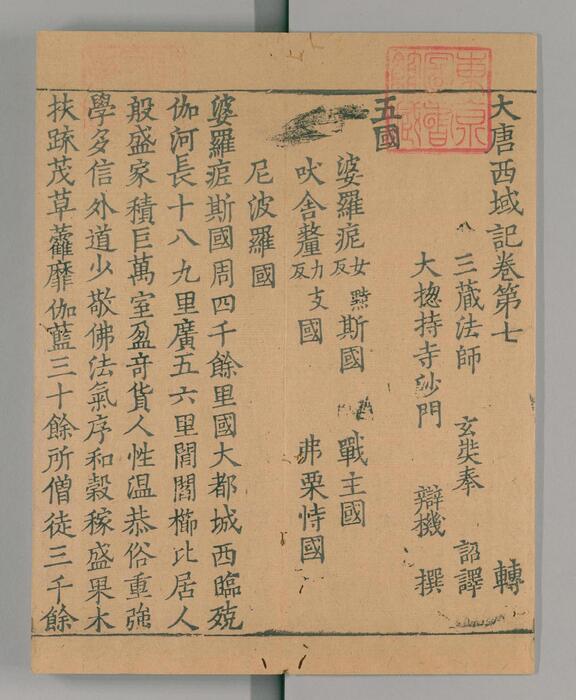 大唐西域記卷第七 轉
三藏法師 玄奘奉 詔譯
大揔持寺沙門 辯機 撰
五國
婆羅痆女黠反斯國 戰主國
吠舍釐力支反國 弗栗恃國
尼波羅國
婆羅痆斯國周四千餘里國大都城西臨殑
伽河長十八九里廣五六里閭閻櫛比居人
殷盛家積巨萬室盈奇貨人性溫恭俗重強
學多信外道少敬佛法氣序和穀稼盛果木
扶疏茂草靃靡伽藍三十餘所僧徒三千餘